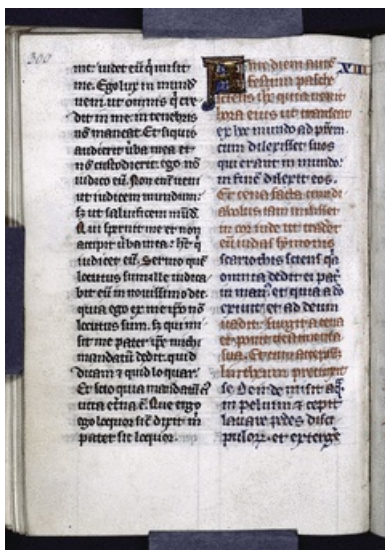 300
me. uidet eu͞ qͥ misit
me. Ego lux in mund͞
ueni ut omnis qͥ cre
dit in me. in tenebris
no͞ maneat. Et si quis
audierit u͞ba mea et
no͞ custodierit. ego no͞
iudico eu͞. Non eni͞ ueni
ut iudicem mundum.
sꝫ ut saluificem mu͞d͞.
Qui spernit me et non
accipit u͞ba mea: h͞t qͥ
iudicet eu͞. Sermo que͞
locutus sum ille iudica
bit eu͞ in nouissimo die.
quia ego ex me ip͞o no͞
locutus sum. sꝫ qui mi
sit me pater ip͞e michi
mandatu͞ dedit. quid
dicam ⁊ quid loquar.
Et scio quia mandatu͞ eiꝰ
uita et͞na e͞. Que ergo
ego loquor sic͞ dixit mͥ
pater sic loquor.
Ante diem aute͞ XIII
festum pasche
sciens ih͞c quia uenit
hora eius ut transeat
ex hoc mundo ad p͞rem
cum dilexisset suos
qui erant in mundo.
in fine͞ dilexit eos.
Et cena facta cum di
abolus iam misisset
in cor iude ut tradet
eu͞ iudas symonis
scariothis. sciens qͥa
omnia dedit ei pat͞
in manꝰ. et quia a do͞
exiuit. et ad deum
uadit. surgit a cena
et ponit uestimenta
sua. Et cum accepiss͞
lintheum precinxit
se. Deinde misit aq͞
in peluim ⁊ cepit
lauare pedes disci
pulorꝝ. et exterge͞